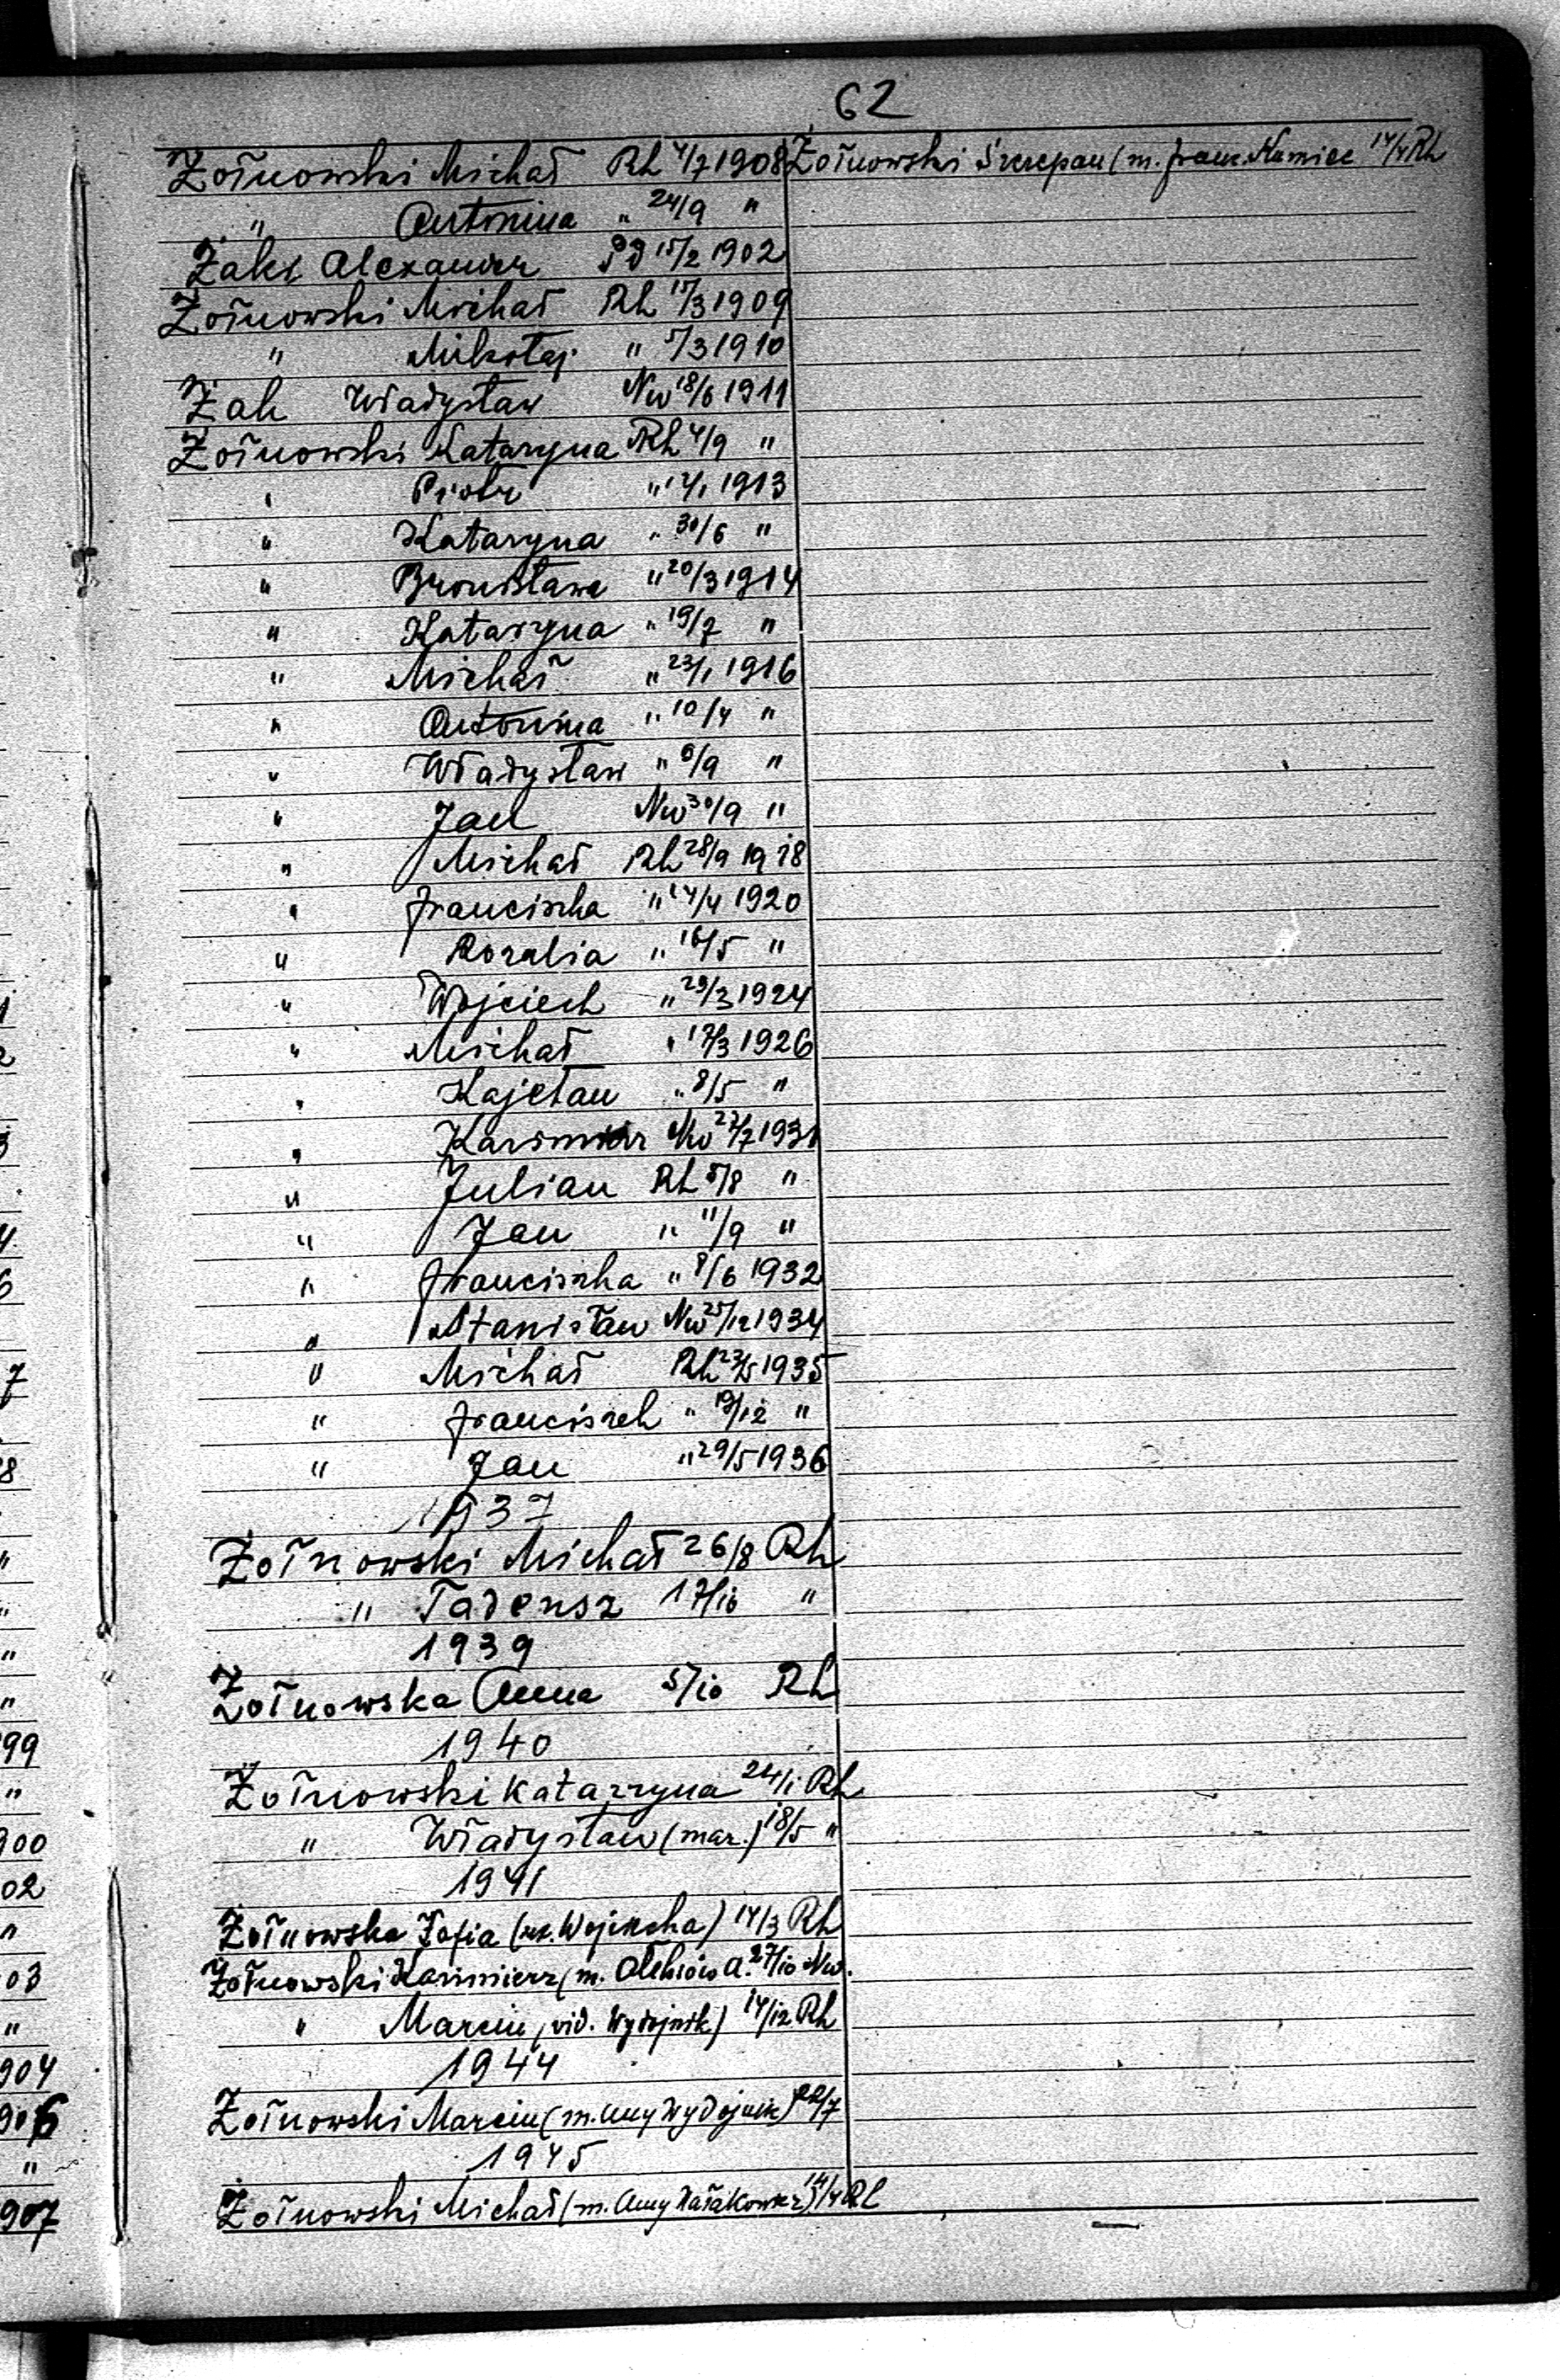 62
Żołnowski Michał Rh 4/7 1908
" Antonina " 24/9 "
Żaks Alexander 15/2 1902
Żołnowski Michał Rh 17/3 1909
" Mikołaj " 5/3 1910
Żak Władysław Nw 18/6 1911
Żołnowski Kataryna Rh 4/9 "
" Piotr " 1913
" Kataryna " 30/6 "
" Bronisława " 20/3 1914
" Kataryna " 19/7 "
" Michał " 23/1 1916
" Antonina " 10/4 "
" Władysław " 6/9 "
" Jan Nw 30/9 "
" Michał Rh 28/9 1918
" Franciszka " 14/4 1920
" Rozalia " 16/5 "
" Wojciech " 29/3 1924
" Michał " 17/3 1926
" Kajetan " 8/5 "
" Kazimierz Nw 27/7 1931
" Julian Rh 5/8 "
" Jan " 11/9 "
" Franciszka " 8/6 1932
" Stanisław Nw 25/12 1934
" Michał Rh 23/5 1935
" Franciszek " 19/12 "
" Jan " 29/5 1936
1937
Żołnowski Michał 26/8 Rh
" Tadeusz 17/10 "
1939
Żołnowska Anna 5/10 Rh
1940
Żołnowski Katarzyna 24/1 Rh
" Władysław (mar.) 18/5 "
1941
Żołnowska Zofia (Wojciecha) 14/3 Rh
Żołnowski Kazimierz (m. A. 27/10 Nw.
" Marcin (vid. Wydojnik) 14/12 Rh
1944
Żołnowski Marcin (m. Anny Wydojnik) 22/7
1945
Żołnowski Michał (m. Anny 14/4 Rh
Żołnowski Szczepan (m. Franc. Kumiec 14/4 Rh